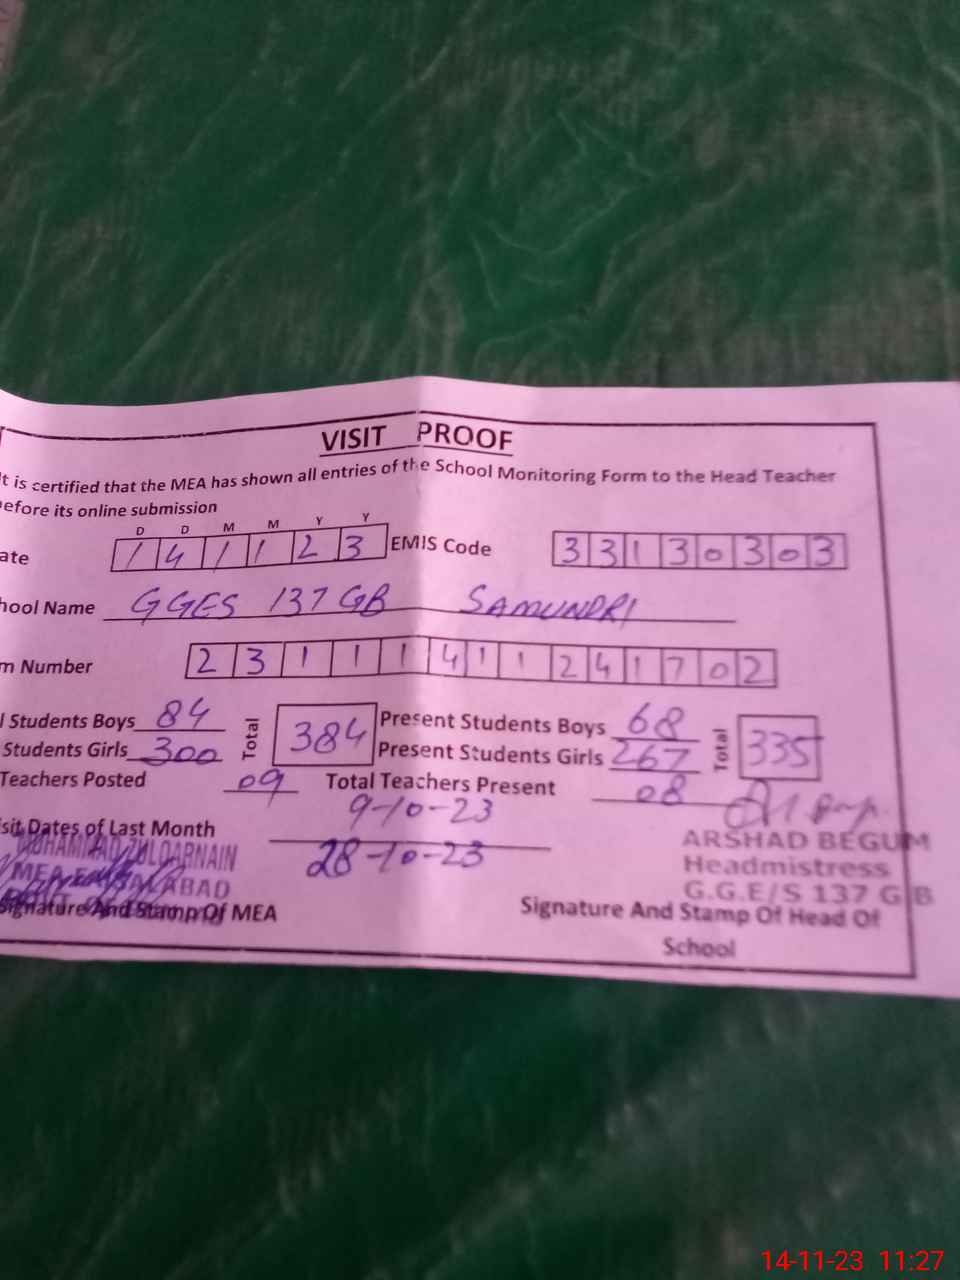 VISIT PROOF
t is certified that the MEA has shown all entries of the School Monitoring Form to the Head Teacher
efore its online submission
D D M M Y Y
ate 1 4 1 1 2 3 EMIS Code 3 3 1 3 0 3 0 3
hool Name GGES 137 GB SAMUNDRI
m Number 2 3 1 1 1 4 1 1 2 4 1 7 0 2
l Students Boys 84 Total 384 Present Students Boys 68 Total 335
Students Girls 300 Present Students Girls 267
Teachers Posted 09 Total Teachers Present 08
sit Dates of Last Month 9-10-23
28-10-23
MUHAMMAD ZULQARNAIN
MEA FAISALABAD
Signature And Stamp Of MEA
ARSHAD BEGUM
Headmistress
G.G.E/S 137 G B
Signature And Stamp Of Head Of
School
14-11-23 11:27